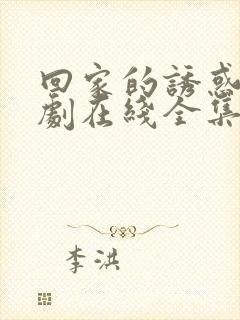 回家的誘惑
劇在綫全集
李洪